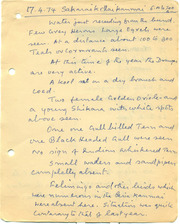 17.4.74 Sakkarakottai kanmai
Water just receding from the bund.
Few Grey Herons Large Egrets were
seen. At a distance about 100 to 200
Teals or Cormorants seen.
At this time of the year the Drongos
are very active.
A kest sat on a dry branch and
Two female Golden Orioles and
a young Shikara with white spots
above seen.
One or one Gull billed Tern and
one Black headed Gull were seen.
No sign of Indian Whiskered Tern
Small waders and sandpipers
completely absent.
Pelicans and other birds which
were numerous in this kanmai
were absent here. Situation was quite
contrary to this last year.